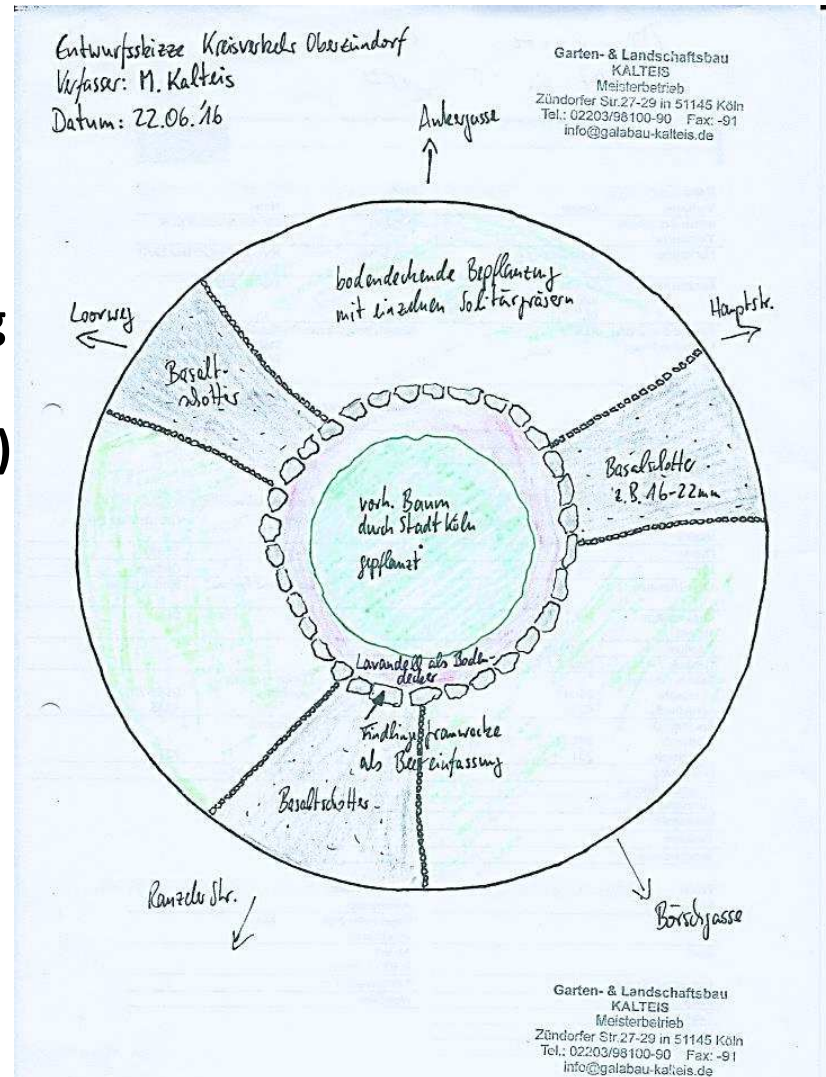 Entwurfsskizze Kreisverkehr Oberzündorf
Verfasser: M. Kalteis
Datum: 22.06.'16
Garten- & Landschaftsbau
KALTEIS
Meisterbetrieb
Zündorfer Str.27-29 in 51145 Köln
Tel.: 02203/98100-90 Fax: -91
info@galabau-kalteis.de
Ankergasse
bodendeckende Bepflanzung
mit einzelnen Solitärgräsern
Loorweg
Hauptstr.
g
)
Basalt-
schotter
Basaltschotter
z.B. 16-22mm
vorh. Baum
durch Stadt Köln
gepflanzt
Lavandell als Boden-
decker
Findlinge
als Beeteinfassung
Basaltschotter
Ranzeler Str.
Börschgasse
Garten- & Landschaftsbau
KALTEIS
Meisterbetrieb
Zündorfer Str.27-29 in 51145 Köln
Tel.: 02203/98100-90 Fax: -91
info@galabau-kalteis.de